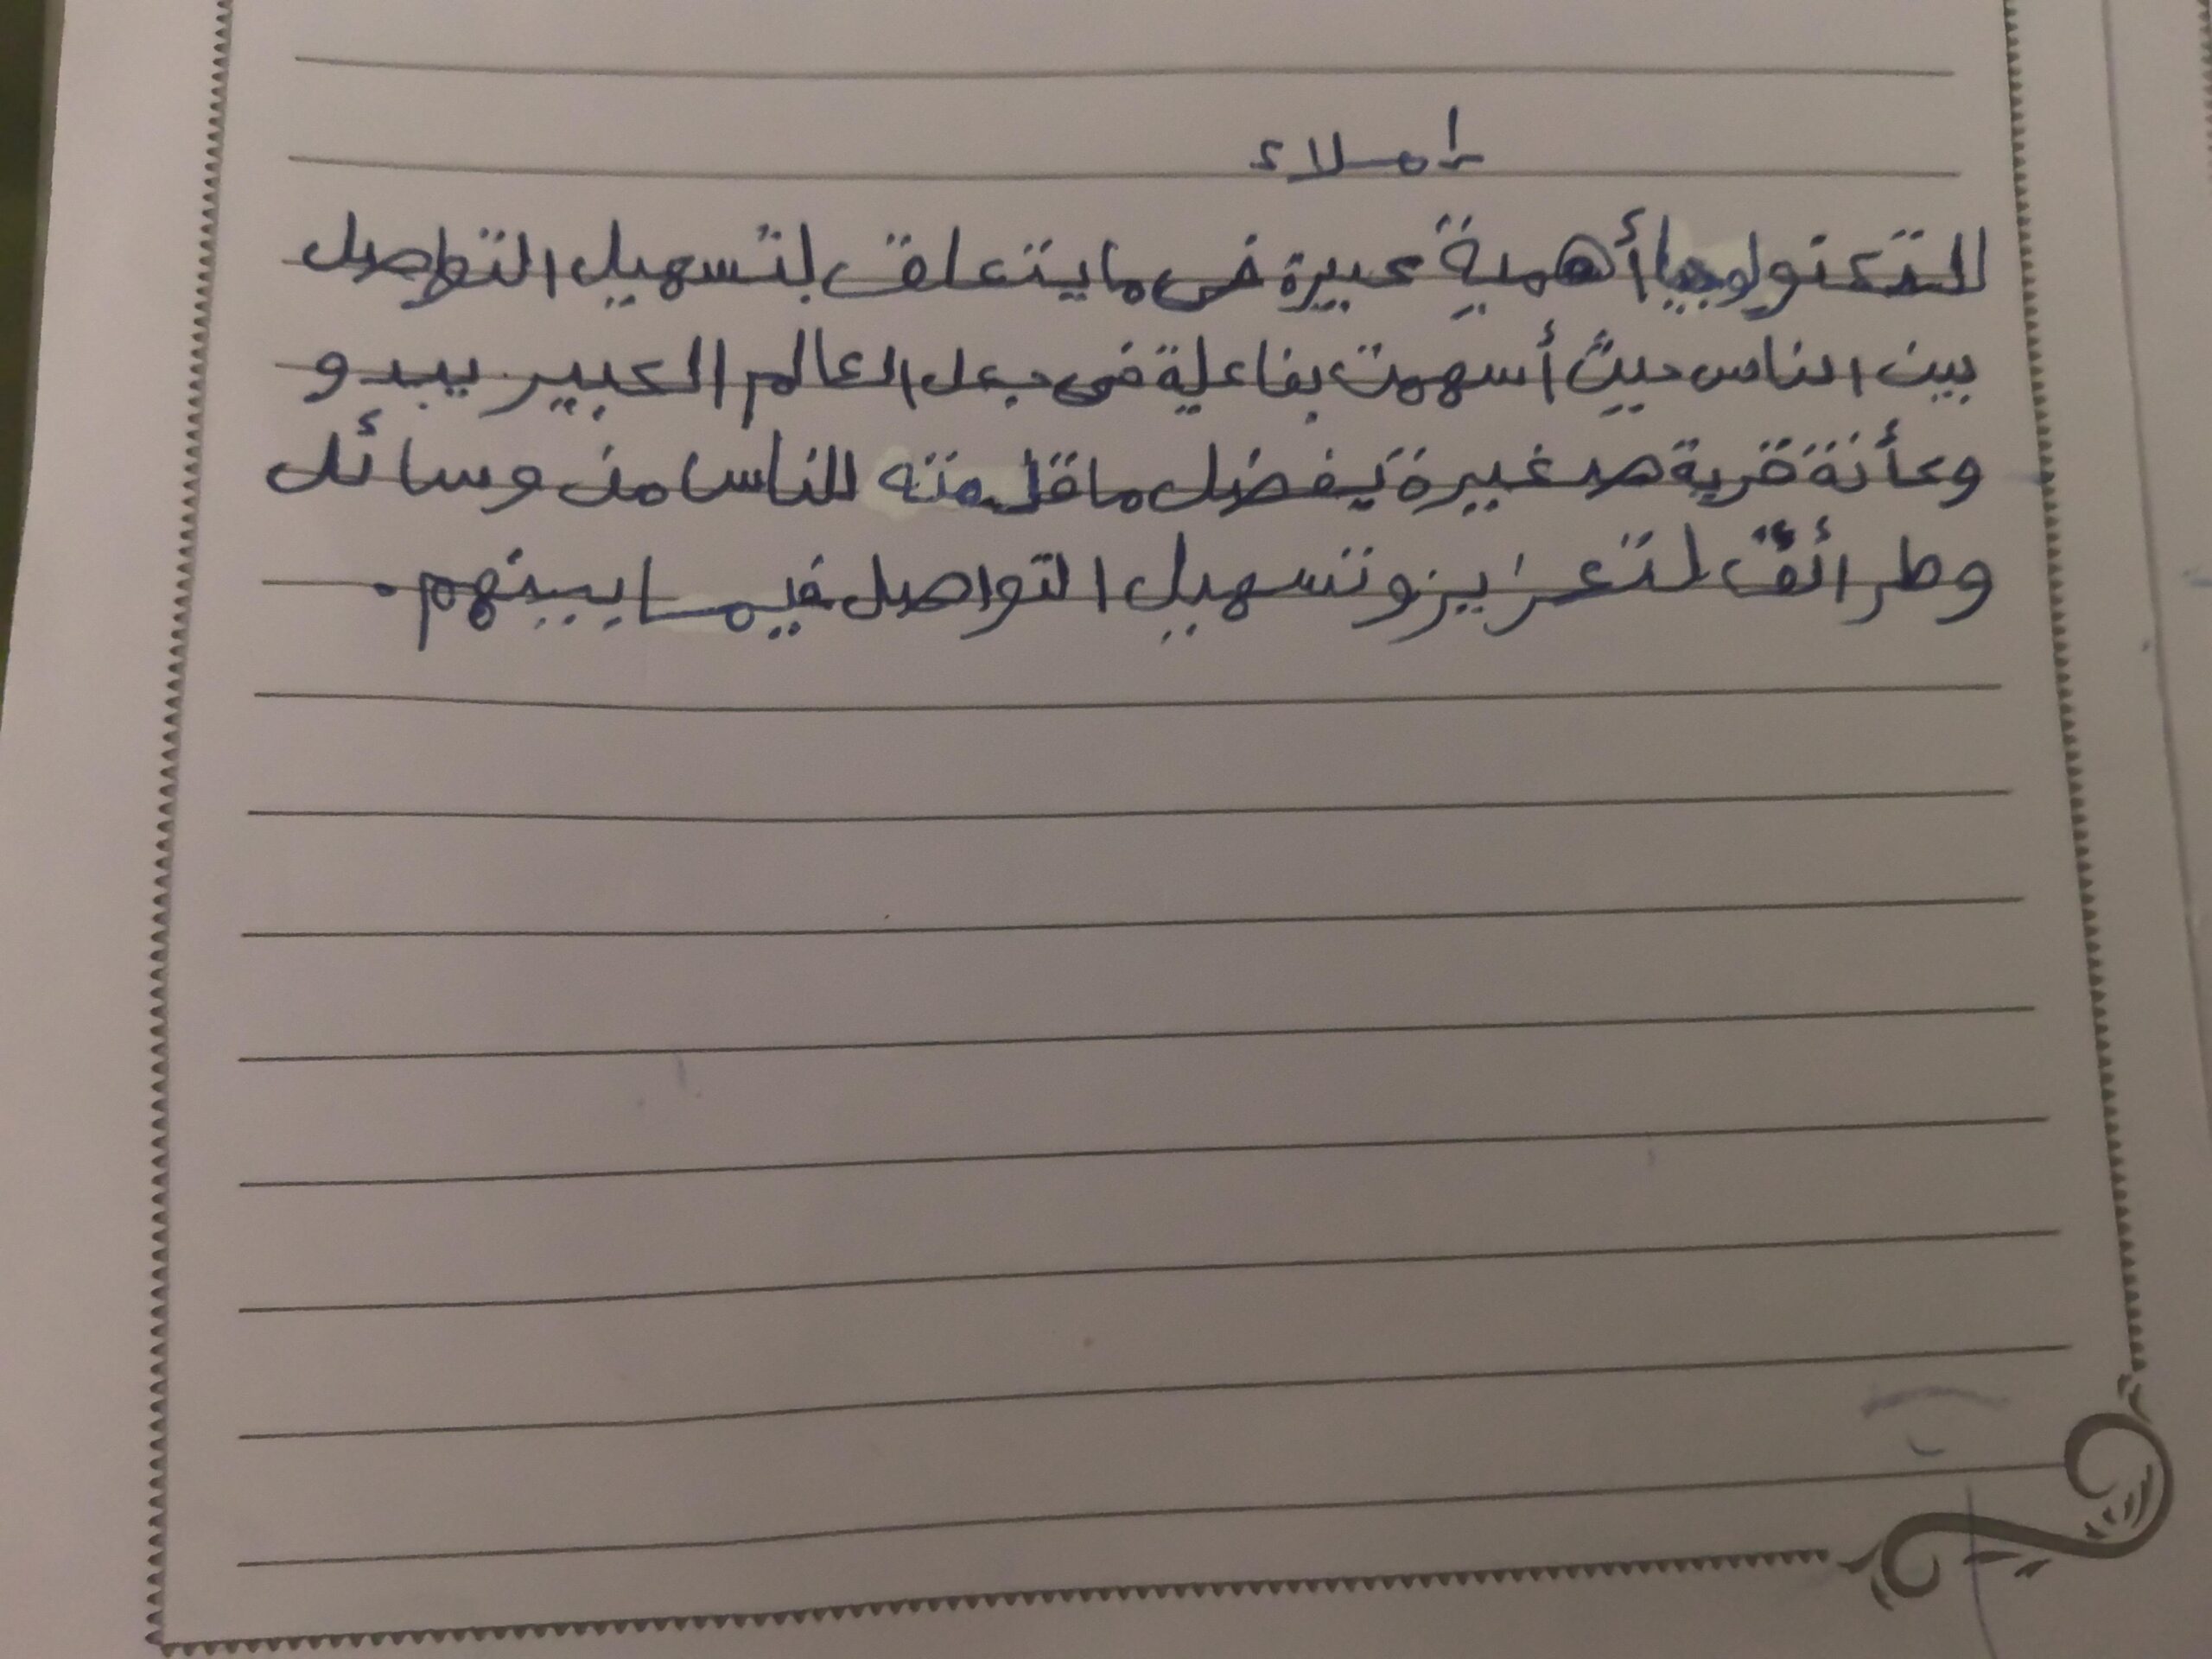 إملاء
للتكنولوجيا أهمية كبيرة في ما يتعلق لتسهيل التواصل
بين الناس حيث أسهمت بفاعلية في جعل العالم الكبير يبدو
وكأنة قرية صغيرة يفضل ما قد منته للناس من وسائل
وطرائق لتعزيز وتسهيل التواصل فيما يبينهم.